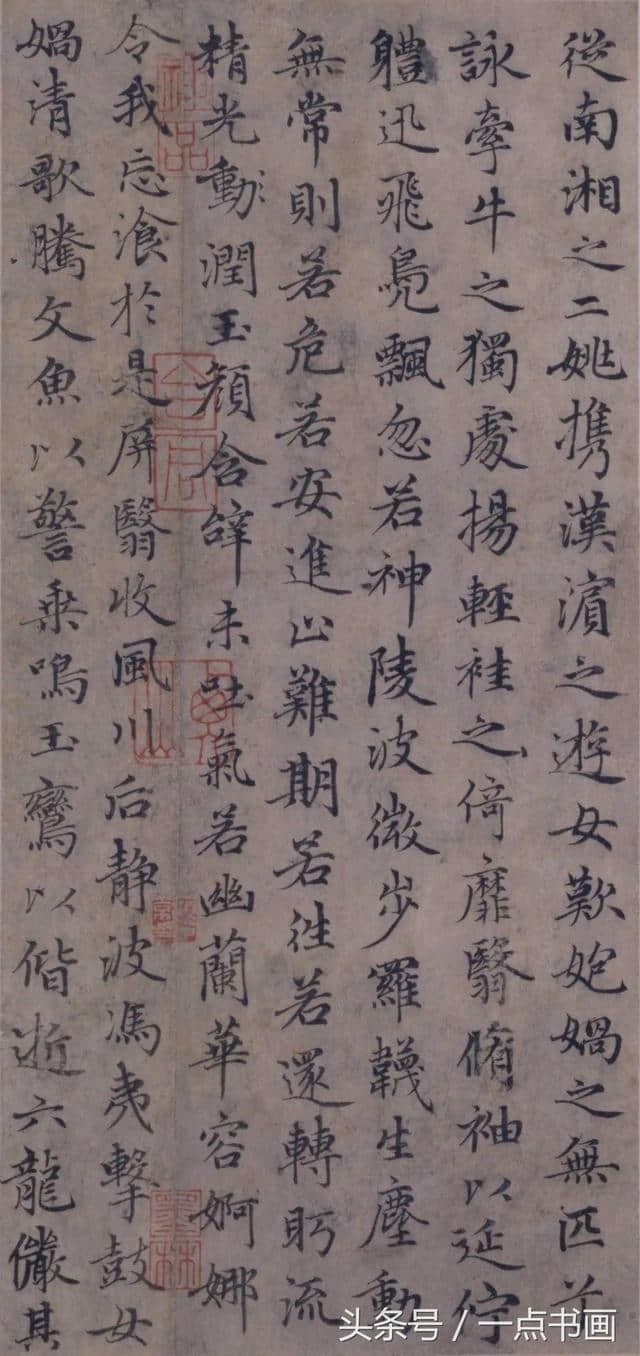 從南湘之二姚携漢濱之遊女歎㚿媧之無匹兮
詠牽牛之獨處揚輕袿之倚靡翳脩袖以延佇
體迅飛鳧飄忽若神陵波微步羅韈生塵動
無常則若危若安進止難期若往若還轉眄流
精光動潤玉顏含辭未吐氣若幽蘭華容婀娜
令我忘湌於是屏翳收風川后静波馮夷擊鼓女
媧清歌騰文魚以警乗鳴玉鸞以偕逝六龍儼其
神品
墨林
头条号 / 一点书画